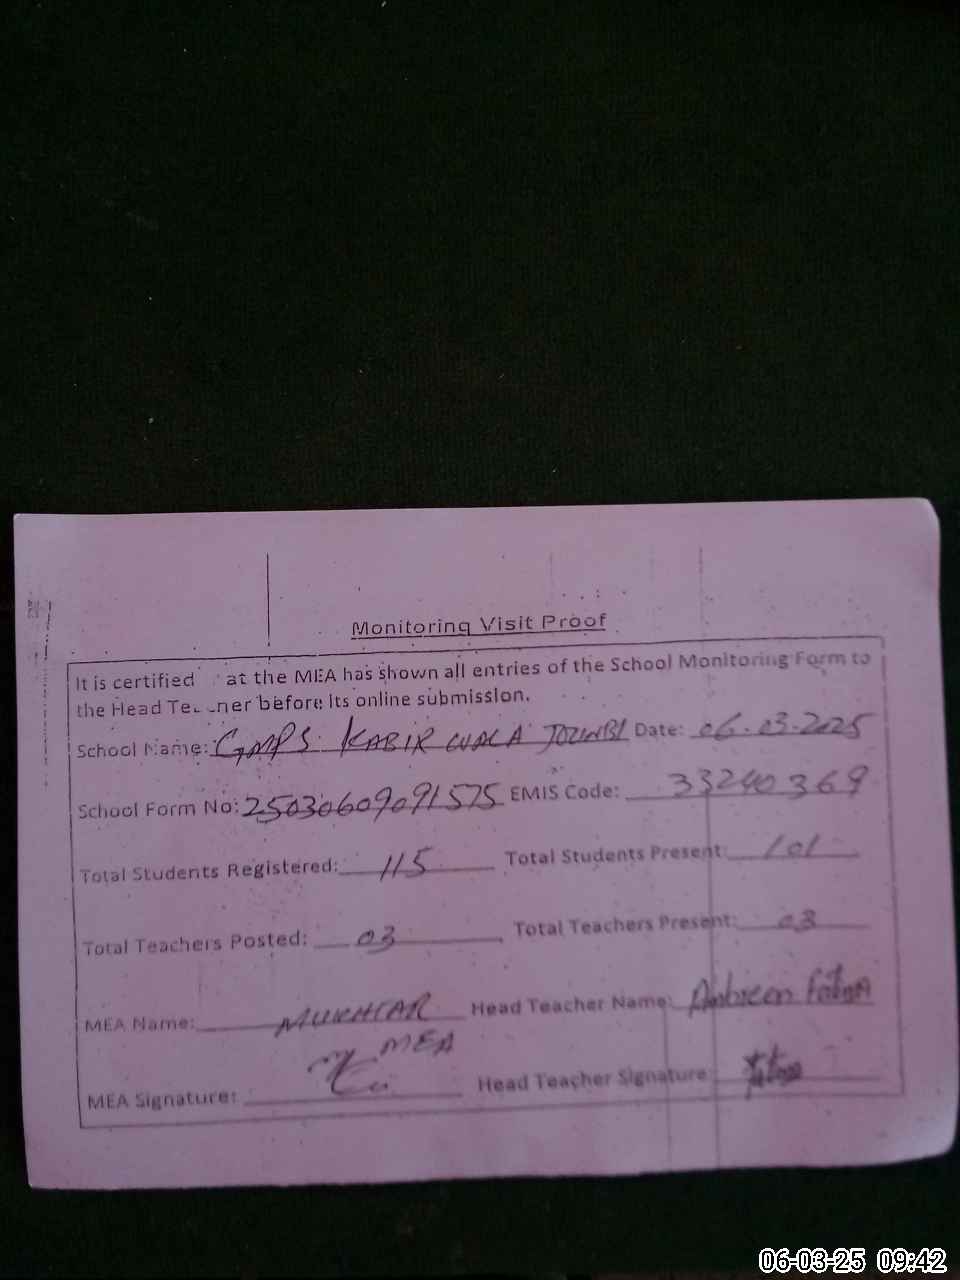 Monitoring Visit Proof
It is certified at the MEA has shown all entries of the School Monitoring Form to
the Head Te ner before its online submission.
School Name: GMPS KABIR WALA JOUNBI Date: 06.03.2025
School Form No: 25030609091575 EMIS Code: 33240369
Total Students Registered: 115 Total Students Present: 101
Total Teachers Posted: 03 Total Teachers Present: 03
MEA Name: MUKHTAR Head Teacher Name: Ambreen Fatima
MEA
MEA Signature: Head Teacher Signature:
06-03-25 09:42